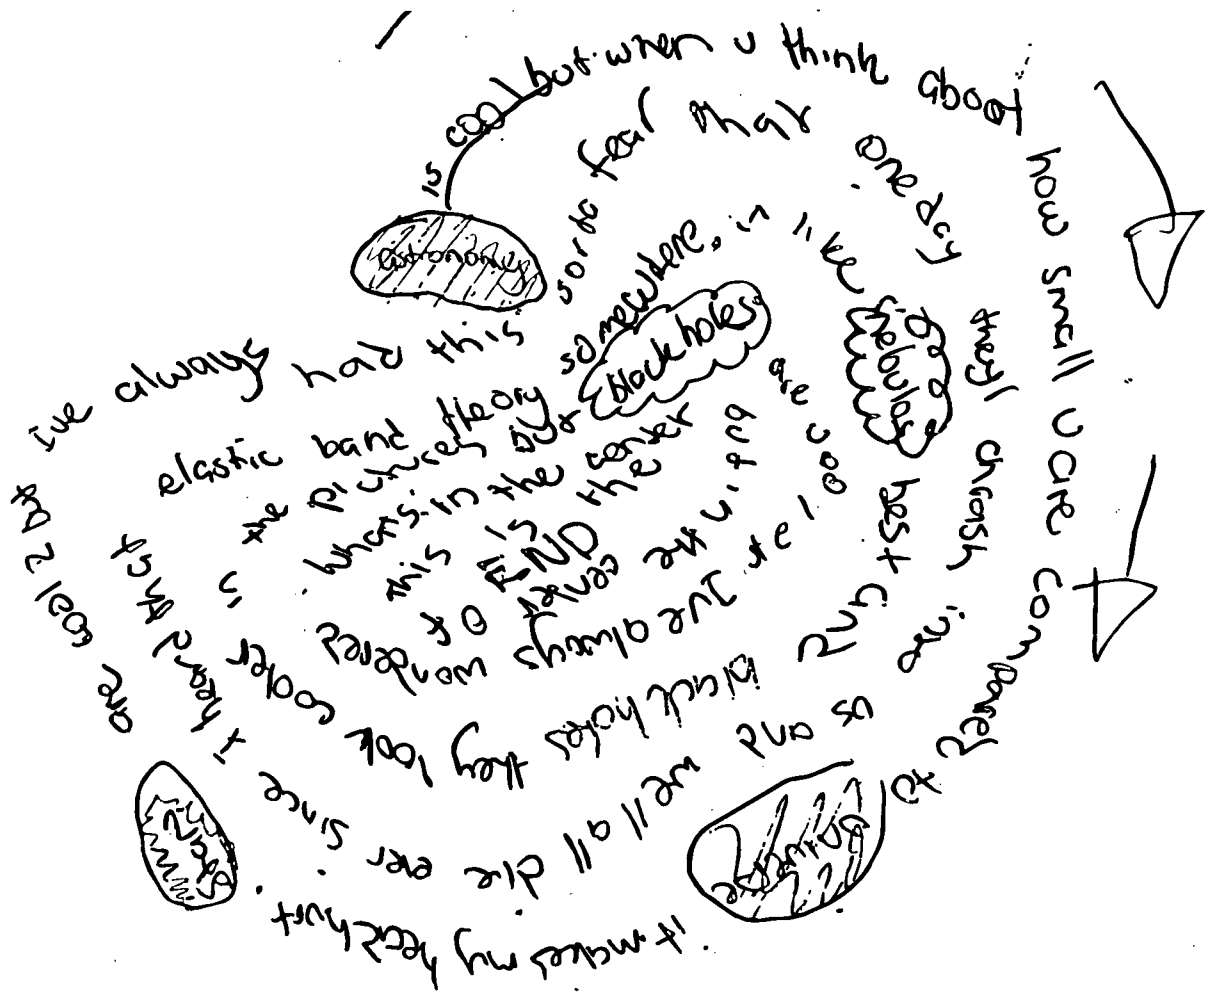 astronomy is cool but when u think about how small u are compared to
it makes my head hurt.
are cool 2 but
ive always had this sorta fear that one day theyl crash in2 us and we'll all die.
ever since i heard that elastic band theory somewhere.
i like nebulas best
black holes they look cooler in the pictures but
black holes are cool 2.
Ive always wondered whats in the center
but in the center of this is the END